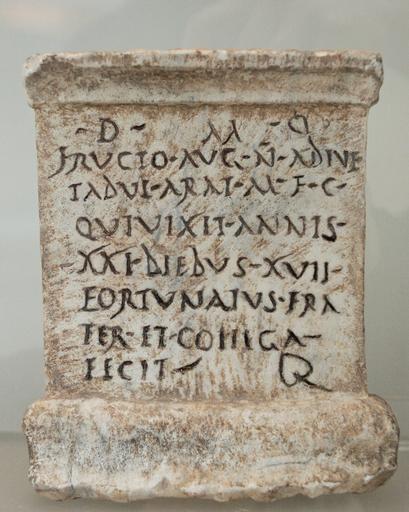 - D - M - Q
FRUCTO - AUG - N - ADIVE
TADUE - ARAE - M - F - C -
QUIVIXIT - ANNIS -
- XXI - DIEBUS - XVII -
FORTUNATUS · FRA
TER - ET - COLLIGA -
FECIT -